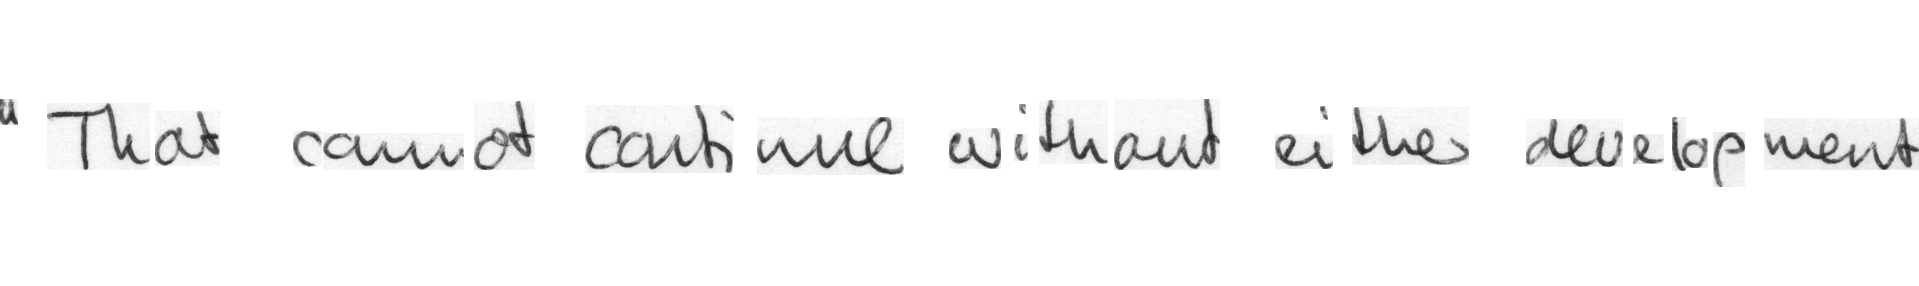 " That cannot continue without either development